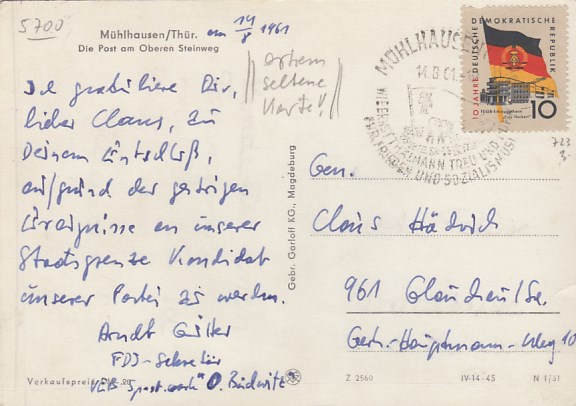 5700
Mühlhausen/Thür. am 14/8 1961
Die Post am Oberen Steinweg
extrem
seltene
Karte!
Ich gratuliere Dir,
lieber Claus, zu
Deinem Entschluß,
aufgrund der gestrigen
Ereignisse an unserer
Staatsgrenze Kandidat
unserer Partei zu werden.
Arndt
FDJ-Sekretär
VEB
Verkaufspreis
Gebr. Garloff KG., Magdeburg
10 JAHRE DEUTSCHE DEMOKRATISCHE REPUBLIK
10
MÜHLHAUSEN
14.8.61
TREU UND
FRIEDEN UND SOZIALISMUS
723
Gen.
Claus Hädrich
961 Glauchau/Sa.
Gerh.-Hauptmann-Weg 10
Z 2560
IV-14-45